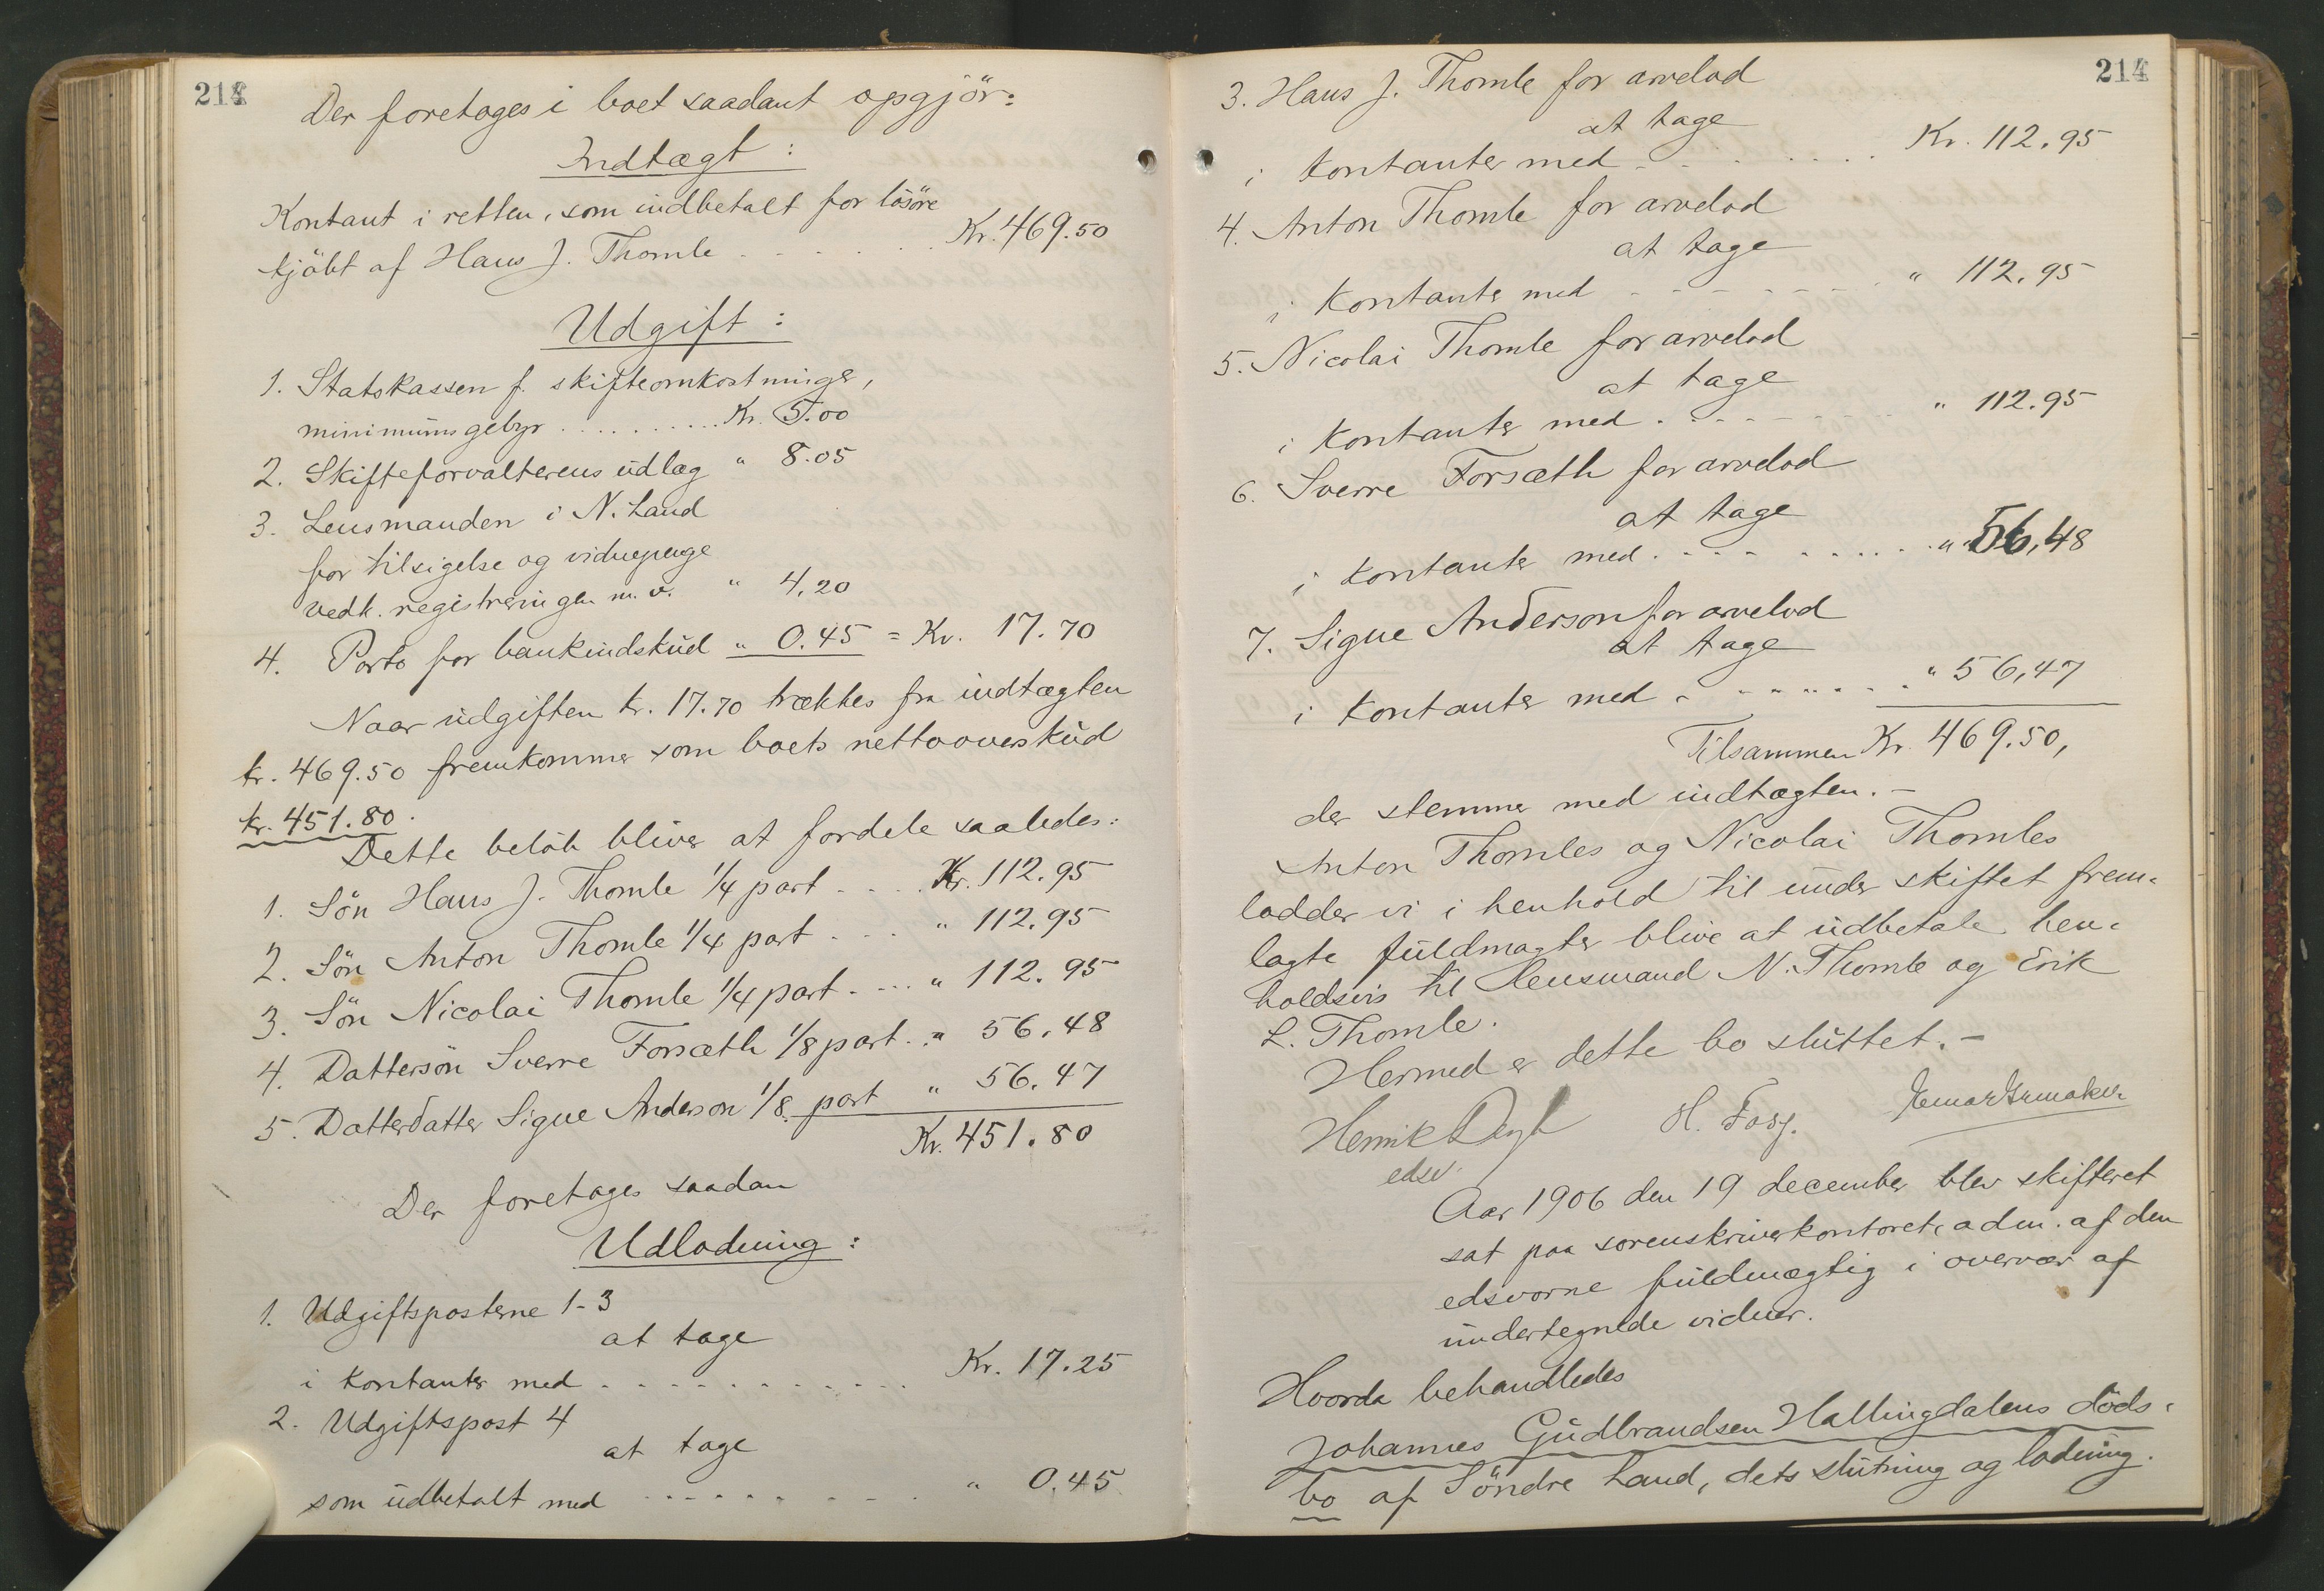 214
Der foretages i boet saadant opgjör:
Indtægt:
Kontant i retten, som indbetalt for lösöre
kjöbt af Hans J. Thomle . . . . . Kr. 469.50
Udgift:
1. Statskassen f. skifteomkostninger,
minimumsgebyr . . . . . . . . . . Kr. 5.00
2. Skifteforvalterens udlæg " 8.05
3. Lensmanden i N. Land
for tilsigelse og vidnepenge
vedk. registreringen m. v. " 4,20
4. Porto for bankindskud " 0.45 = Kr. 17.70
Naar udgiften kr. 17.70 trækkes fra indtægten
kr. 469.50 fremkommer som boets nettooverskud
kr. 451.80.
Dette beløb bliver at fordele saaledes:
1. Sön Hans J. Thomle 1/4 part . . . . Kr. 112.95
2. Sön Anton Thomle 1/4 part . . . . " 112.95
3. Sön Nicolai Thomle 1/4 part . . . . " 112.95
4. Dattersön Sverre Forsæth 1/8 part . . " 56.48
5. Datterdatter Signe Anderson 1/8 part " 56.47
Kr. 451.80
Der foretages saadan
Udlodning:
1. Udgiftsposterne 1-3
at tage
i kontanter med . . . . . . . . . . . . Kr. 17.25
2. Udgiftspost 4
at tage
som udbetalt med . . . . . . . . . . " 0.45
214
3. Hans J. Thomle for arvelod
at tage
i kontanter med . . . . . . . . Kr. 112.95
4. Anton Thomle for arvelod
at tage
i kontanter med . . . . . . . . " 112.95
5. Nicolai Thomle for arvelod
at tage
i kontanter med . . . . . . . . " 112.95
6. Sverre Forsæth for arvelod
at tage
i kontanter med . . . . . . . . . " 56,48
7. Signe Anderson for arvelod
at tage
i kontanter med . . . . . . . . " 56,47
Tilsammen Kr. 469.50,
der stemmer med indtægten. –
Anton Thomles og Nicolai Thomles
lodder vi i henhold til under skiftet frem-
lagte fuldmagter blive at udbetale hen-
holdsvis til Lensmand N. Thomle og Erik
L. Thomle.
Hermed er dette bo sluttet. –
Henrik H. Fosg.
edsv.
Aar 1906 den 19 december blev skifteret
sat paa sorenskriverkontoret, adm. af den
edsvorne fuldmægtig i overvær af
undertegnede vidner.
Hvorda behandledes
Johannes Gudbrandsen Hallingdalens döds-
bo af Söndre Land, dets slutning og lodning.